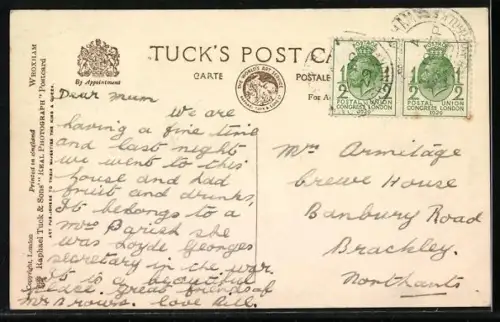 TUCK'S POST CA
CARTE POSTALE
For A
By Appointment
WROXHAM
Printed in England
Raphael Tuck & Sons' "REAL PHOTOGRAPH" Postcard
Copyright, London
POSTAL UNION
CONGRESS LONDON
1929
1/2
POSTAL UNION
CONGRESS LONDON
1929
1/2
Dear Mum
We are
having a fine time
and last night
we went to this
house and had
fruit and drinks,
It belongs to a
Mrs Parish she
was Loyde Georges
secretary in the war.
It is a beautiful
place. Great friends of
Mrs Brows. love Bill.
Mrs Armitage
Crewe House
Banbury Road
Brackley.
Northants.